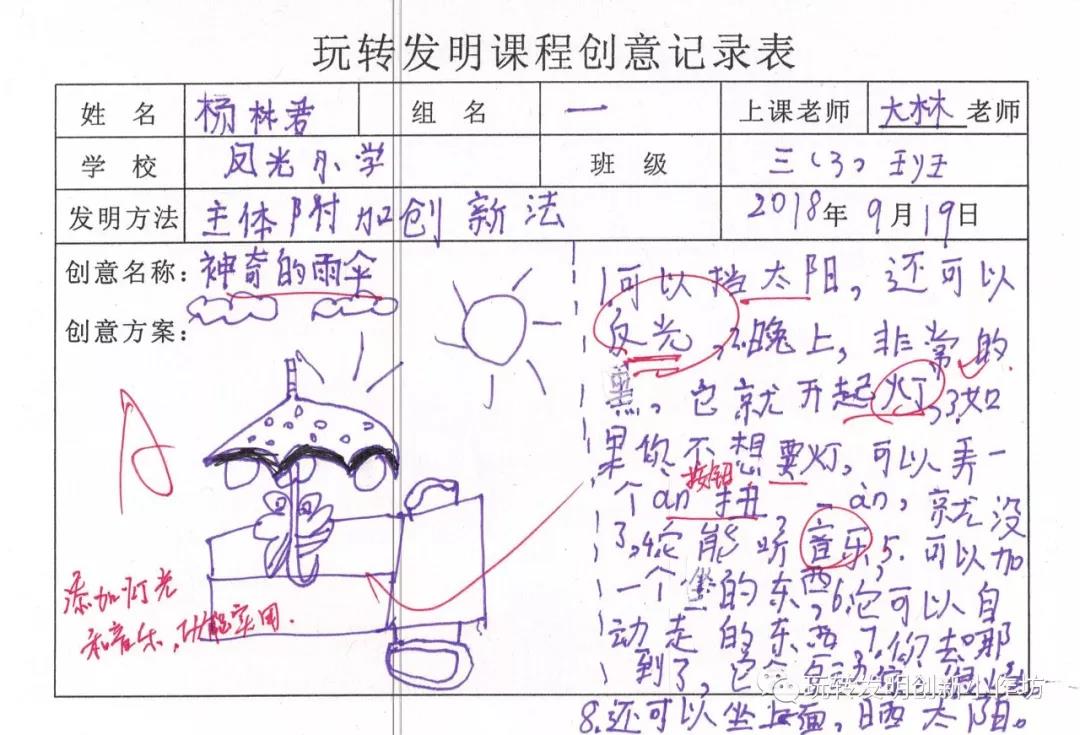 玩转发明课程创意记录表
姓 名 杨林君 组 名 一 上课老师 大林 老师
学 校 凤光小学 班 级 三(3)班
发明方法 主体附加创新法 2018年9月19日
创意名称: 神奇的雨伞
创意方案:
1可以挡太阳,还可以
反光,2.晚上,非常的
黑,它就开起灯,3.如
果你不想要灯,可以弄一
按钮
个àn扭,一àn,就没
了,4.它能听音乐,5.可以加
一个坐的东西,6.它可以自
动走的东西7.你去那
到了,它会
8.还可以坐上面,晒太阳。
A
添加灯光
和音乐,功能实用.
玩转发明创新小作坊